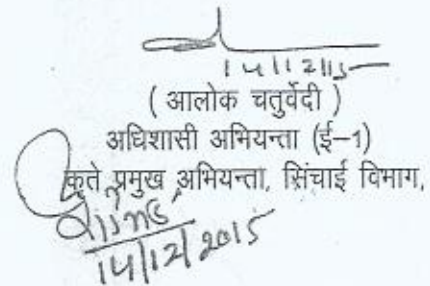 14/12/15
( आलोक चतुर्वेदी )
अधिशासी अभियन्ता (ई-1)
कृते प्रमुख अभियन्ता, सिंचाई विभाग,
14/12/2015